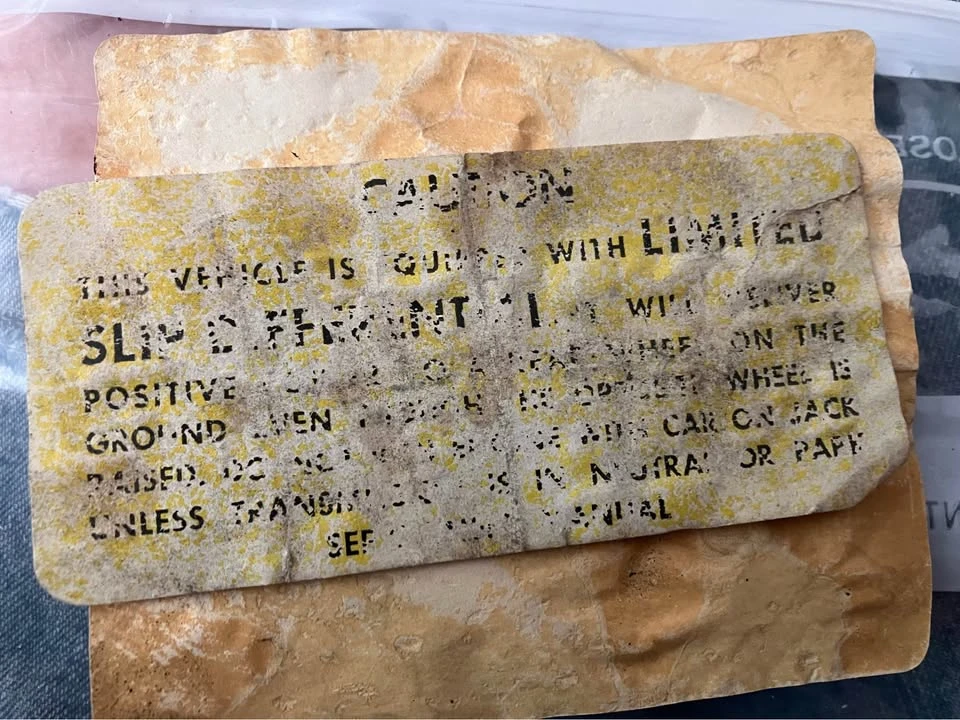 CAUTION
THIS VEHICLE IS EQUIPPED WITH LIMITED
SLIP DIFFERENTIAL THAT WILL DELIVER
POSITIVE TO A REAR WHEEL ON THE
GROUND EVEN THOUGH THE OPPOSITE WHEEL IS
RAISED. DO NOT WITH CAR ON JACK
UNLESS TRANSMISSION IS IN NEUTRAL OR PARK
SEE MANUAL